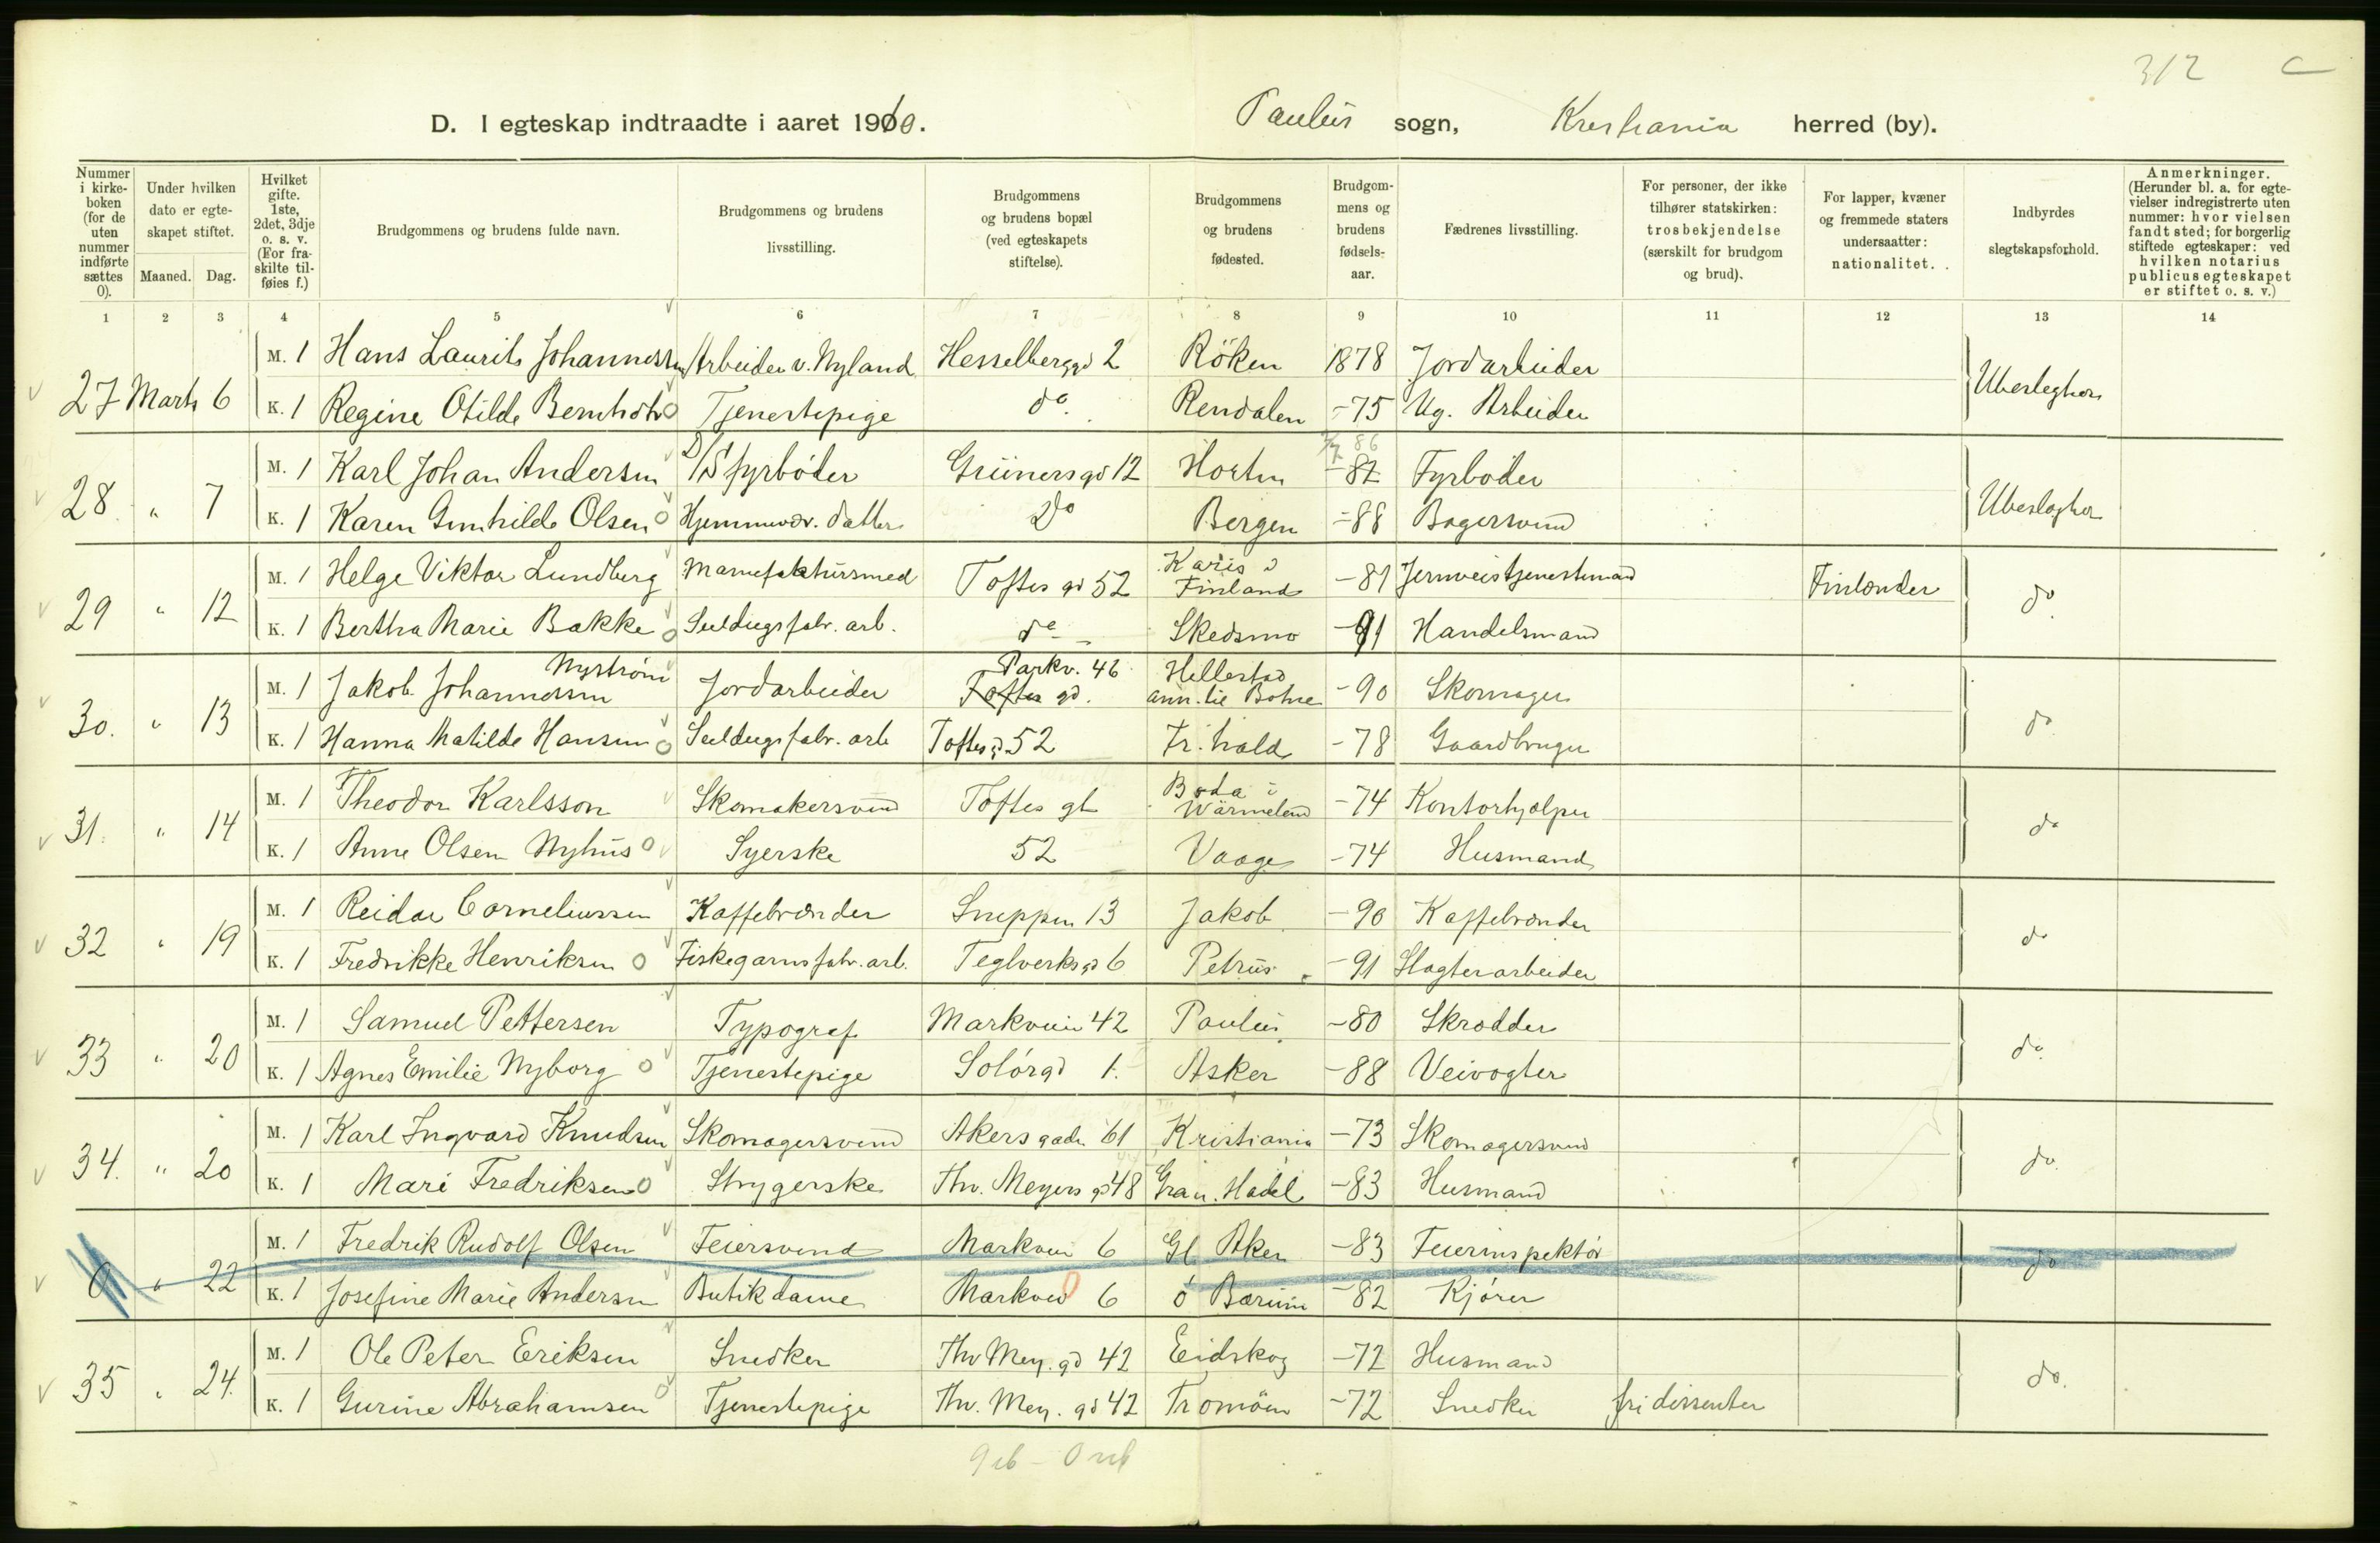 312 C
D. I egteskap indtraadte i aaret 1910. Paulus sogn, Kristiania herred (by).
Nummer i kirkeboken (for de uten nummer indførte sættes 0).
Under hvilken dato er egteskapet stiftet.
Maaned. Dag.
Hvilket gifte. 1ste, 2det, 3dje o. s. v. (For fraskilte tilføies f.)
Brudgommens og brudens fulde navn.
Brudgommens og brudens livsstilling.
Brudgommens og brudens bopæl (ved egteskapets stiftelse).
Brudgommens og brudens fødested.
Brudgommens og brudens fødselsaar.
Fædrenes livsstilling.
For personer, der ikke tilhører statskirken: trosbekjendelse (særskilt for brudgom og brud).
For lapper, kvæner og fremmede staters undersaatter: nationalitet.
Indbyrdes slegtskapsforhold.
Anmerkninger. (Herunder bl. a. for egtevielser indregistrerte uten nummer: hvor vielsen fandt sted; for borgerlig stiftede egteskaper: ved hvilken notarius publicus egteskapet er stiftet o. s. v.)
1 2 3 4 5 6 7 8 9 10 11 12 13 14
27 Marts 6 M. 1 Hans Laurits Johannessen Arbeider v. Nyland Hesselberggd 2 Röken 1878 Jordarbeider Ubeslegtet
K. 1 Regine Otilde Bernhoft Tjenestepige do. Rendalen -75 Ug. Arbeider
28 " 7 M. 1 Karl Johan Andersen D/S fyrbøder Grünersgd 12 Horten -87 86 Fyrbøder Ubeslegtet
K. 1 Karen Gunhilde Olsen Hjemmevær. datter Do Bergen -88 Bagersvend
29 " 12 M. 1 Helge Viktor Lundberg Manufaktursmed Toftes gd 52 Karis i Finland -81 Jernveistjenestemand Finlænder do
K. 1 Bertha Marie Bakke Seildugsfabr. arb. do Skedsmo -91 Handelsmand
30. " 13 M. 1 Jakob Johannessen Nystrøm Jordarbeider Parkv. 46 Toftes gd. Hillestad ann. til Botne -90 Skomager do
K. 1 Hanna Matilde Hansen Seildugsfabr. arb Toftesgd 52 Fr.hald -78 Gaardbruger
31. " 14 M. 1 Theodor Karlsson Skomakersvend Toftes gt Boda i Wärmeland -74 Kontorhjælper do
K. 1 Anne Olsen Nyhus Syerske 52 Vaage -74 Husmand
32 " 19 M. 1 Reidar Corneliussen Kaffebrænder Sneppen 13 Jakob -90 Kaffebrænder do
K. 1 Fredrikke Henriksen Fiskegarnsfabr. arb. Teglverksgd 6 Petrus -91 Slagterarbeider
33 " 20 M. 1 Samuel Pettersen Typograf Markveien 42 Paulus -80 Skrædder do.
K. 1 Agnes Emilie Nyborg Tjenestepige Solørgd 1. Asker -88 Veivogter
34. " 20 M. 1 Karl Ingvard Knudsen Skomagersvend Akersgaden 61 Kristiania -73 Skomagersvend do.
K. 1 Mari Fredriksen Strygerske Thv. Meyers gd 48 Gran. Hadel. -83 Husmand
0 " 22 M. 1 Fredrik Rudolf Olsen Feiersvend Markvei 6 Gl Aker -83 Feierinspektør do
K. 1 Josefine Marie Andersen Butikdame Markvei 6 ø Bærum -82 Kjører
35 " 24. M. 1 Ole Peter Eriksen Snedker Thv Mey. gd 42 Eidskog -72 Husmand do.
K. 1 Gurine Abrahamsen Tjenestepige Thv. Mey. gd 42 Tromöen -72 Snedker fri dissenter